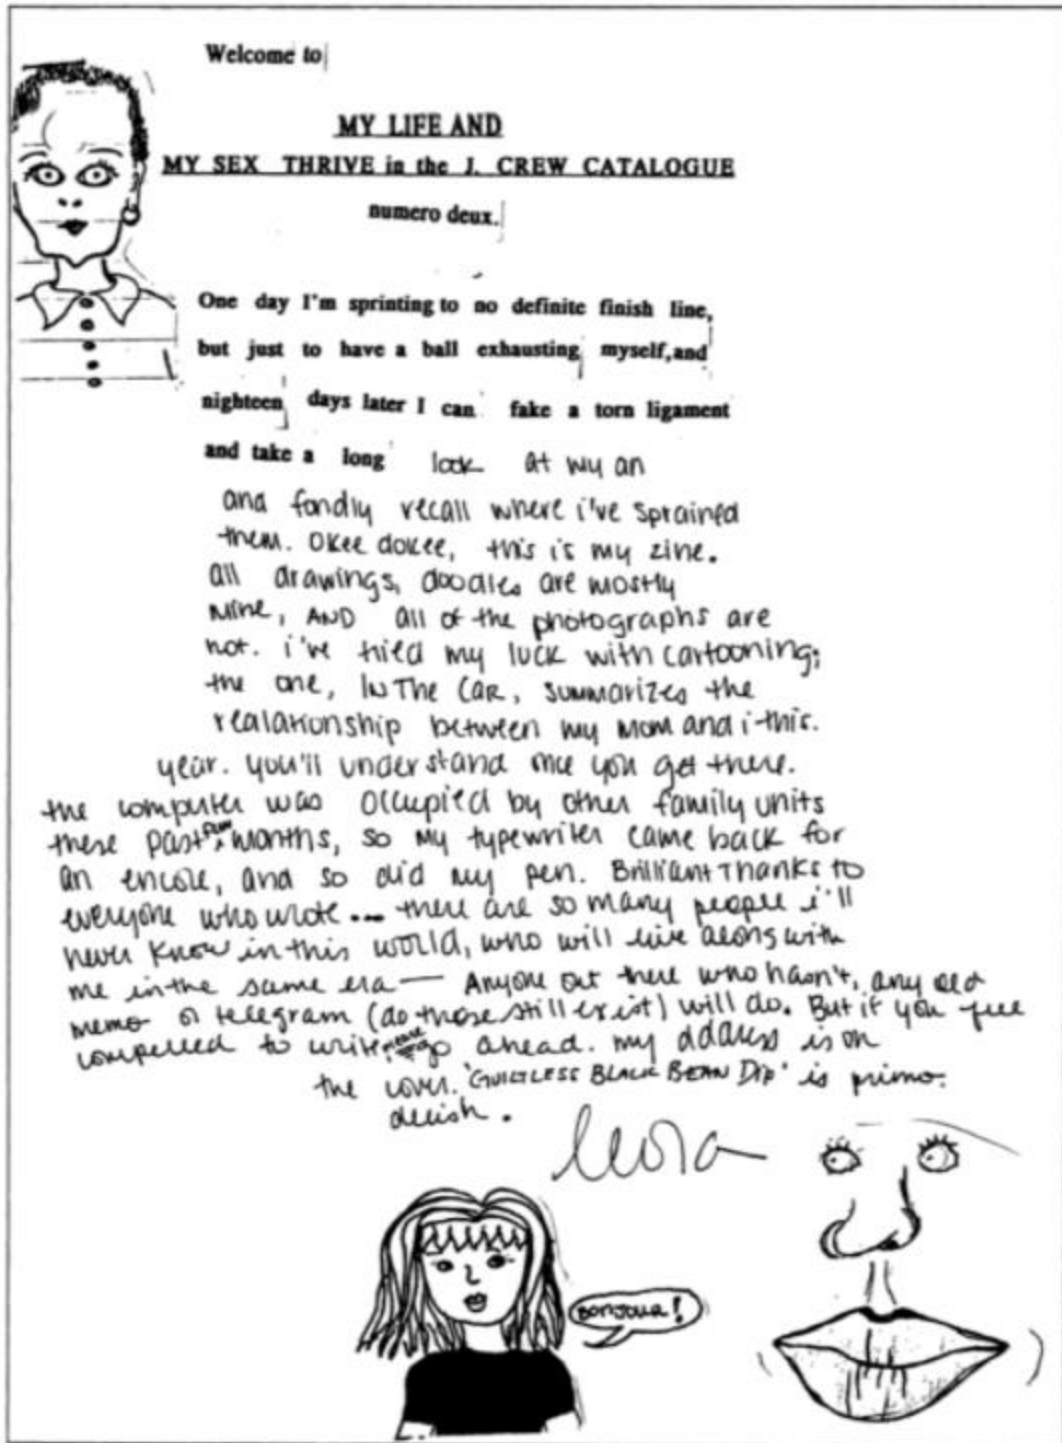 Welcome to
MY LIFE AND
MY SEX THRIVE in the J. CREW CATALOGUE
numero deux.
One day I'm sprinting to no definite finish line,
but just to have a ball exhausting myself,and
nighteen days later I can fake a torn ligament
and take a long look at my an
and fondly recall where i've sprained
them. Okee dokee, this is my zine.
all drawings, doodles are mostly
mine, AND all of the photographs are
not. i've tried my luck with cartooning;
the one, IN THE CAR, summarizes the
realationship between my mom and i this.
year. you'll understand once you get there.
the computer was occupied by other family units
these past few months, so my typewriter came back for
an encore, and so did my pen. Brilliant Thanks to
everyone who wrote ... there are so many people i'll
never know in this world, who will live along with
me in the same era — Anyone out there who hasn't, any old
memo or telegram (do those still exist) will do. But if you feel
compelled to write, go ahead. my address is on
the cover. 'GUILTLESS BLACK BEAN DIP' is primo.
delish.
leora
BONJOUR!